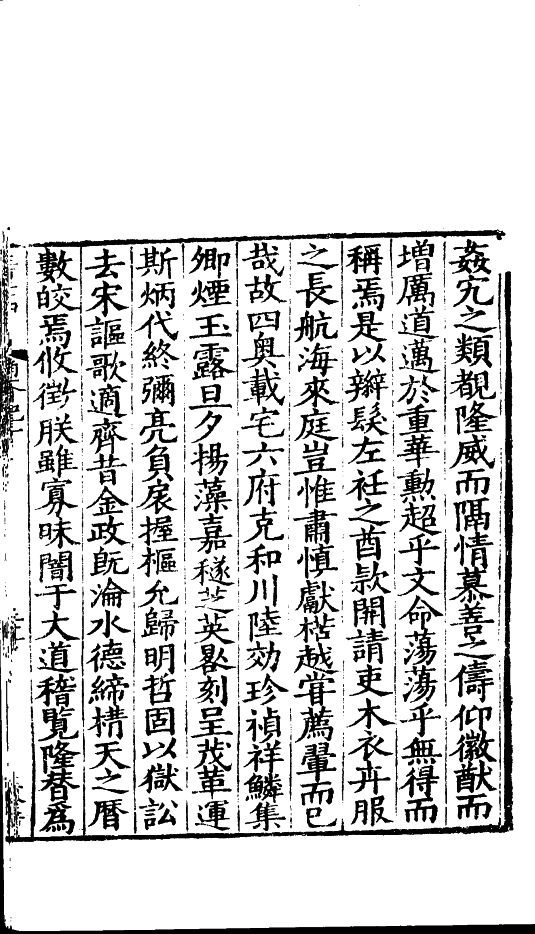 姦宄之類覩隆威而隔情慕善之儔仰徽猷而
增厲道邁於重華勳超乎文命蕩蕩乎無得而
稱焉是以辮髮左衽之酋欵開請吏木衣卉服
之長航海來庭豈惟肅愼獻楛越甞薦翬而已
哉故四奥載宅六府克和川陸効珍禎祥鱗集
卿煙玉露旦夕揚藻嘉穟芝英晷刻呈茂革運
斯炳代終彌亮負扆握樞允歸明哲固以獄訟
去宋謳歌適齊昔金政旣淪水德締構天之曆
數皎焉攸徵朕雖寡昧闇于大道稽覽隆替爲